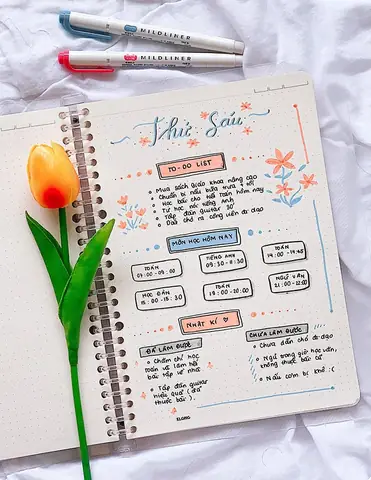 MILDLINER
MILDLINER
Thứ Sáu
TO-DO LIST
Mua sách giáo khoa nâng cao
Chuẩn bị nấu bữa trưa + tối
Học bài cho tiết Toán hôm nay
Tự học nói tiếng Anh
Tập đàn guitar 30'
Dắt chó ra công viên đi dạo
MÔN HỌC HÔM NAY
TOÁN
07:00 - 09:00
TIẾNG ANH
09:30 - 11:30
TOÁN
14:00 -
HỌC ĐÀN
15:00 - 15:30
TOÁN
18:00 - 20:00
NGỮ VĂN
21:00 - 22:00
NHẬT KÍ
ĐÃ LÀM ĐƯỢC
Chăm chỉ học
toán và làm hết
bài tập về nhà
Tập đàn guitar
hiệu quả (đã
thuộc bài).
CHƯA LÀM ĐƯỢC
Chưa dắt chó đi dạo
Ngủ trong giờ học văn,
không thuộc bài cũ
Nấu cơm bị khê :(
KLONG